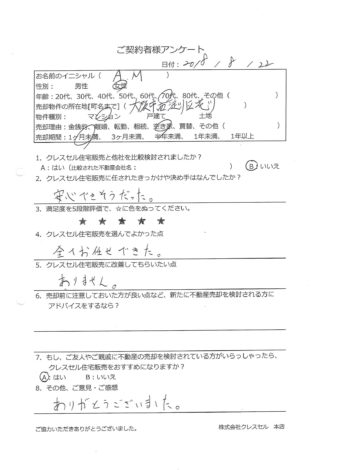 ご契約者様アンケート
日付: 2018 / 8 / 22
お名前のイニシャル ( A M )
性別: 男性 女性
年齢: 20代、30代、40代、50代、60代、70代、80代、その他 ( )
売却物件の所在地【町名まで】 (
物件種別: マンション 戸建て 土地
売却理由: 金銭的、離婚、転勤、相続、空き家、買替、その他 ( )
売却期間: 1ヶ月未満、 3ヶ月未満、 半年未満、 1年未満、 1年以上
1. クレスセル住宅販売と他社を比較検討されましたか?
A: はい (比較された不動産会社名: ) B: いいえ
2. クレスセル住宅販売に任されたきっかけや決め手はなんでしたか?
安心できそうだった。
3. 満足度を5段階評価で、☆に色をぬってください。
★ ★ ★ ★ ★
4. クレスセル住宅販売を選んでよかった点
全てお任せできた。
5. クレスセル住宅販売に改善してもらいたい点
ありません。
6. 売却前に注意しておいた方が良い点など、新たに不動産売却を検討される方に
アドバイスをするなら?
7. もし、ご友人やご親戚に不動産の売却を検討されている方がいらっしゃったら、
クレスセル住宅販売をおすすめになりますか?
A: はい B: いいえ
8. その他、ご意見・ご感想
ありがとうございました。
ご協力いただきありがとうございました。 株式会社クレスセル 本店